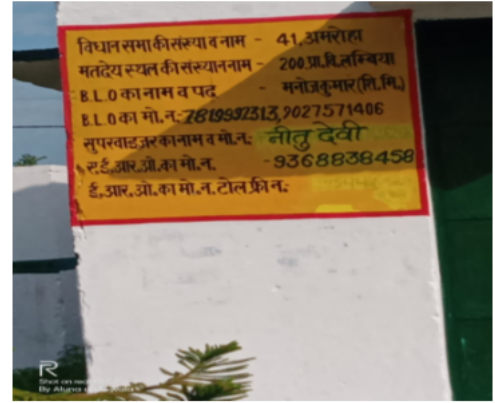 विधान सभा की संख्या व नाम - 41, अमरोहा
मतदेय स्थल की संख्या न नाम - 200 प्रा.वि. लम्बिया
B.L.O का नाम व पद - मनोजकुमार (शि.मि.)
B.L.O का मो.न.: 7819992313, 9027571406
सुपरवाइजर का नाम व मो.न: नीतु देवी
ए.ई.आर.ओ. का मो.न. - 9368838458
ई.आर.ओ. का मो.न. टोल फ्री न:
R
Shot on
By